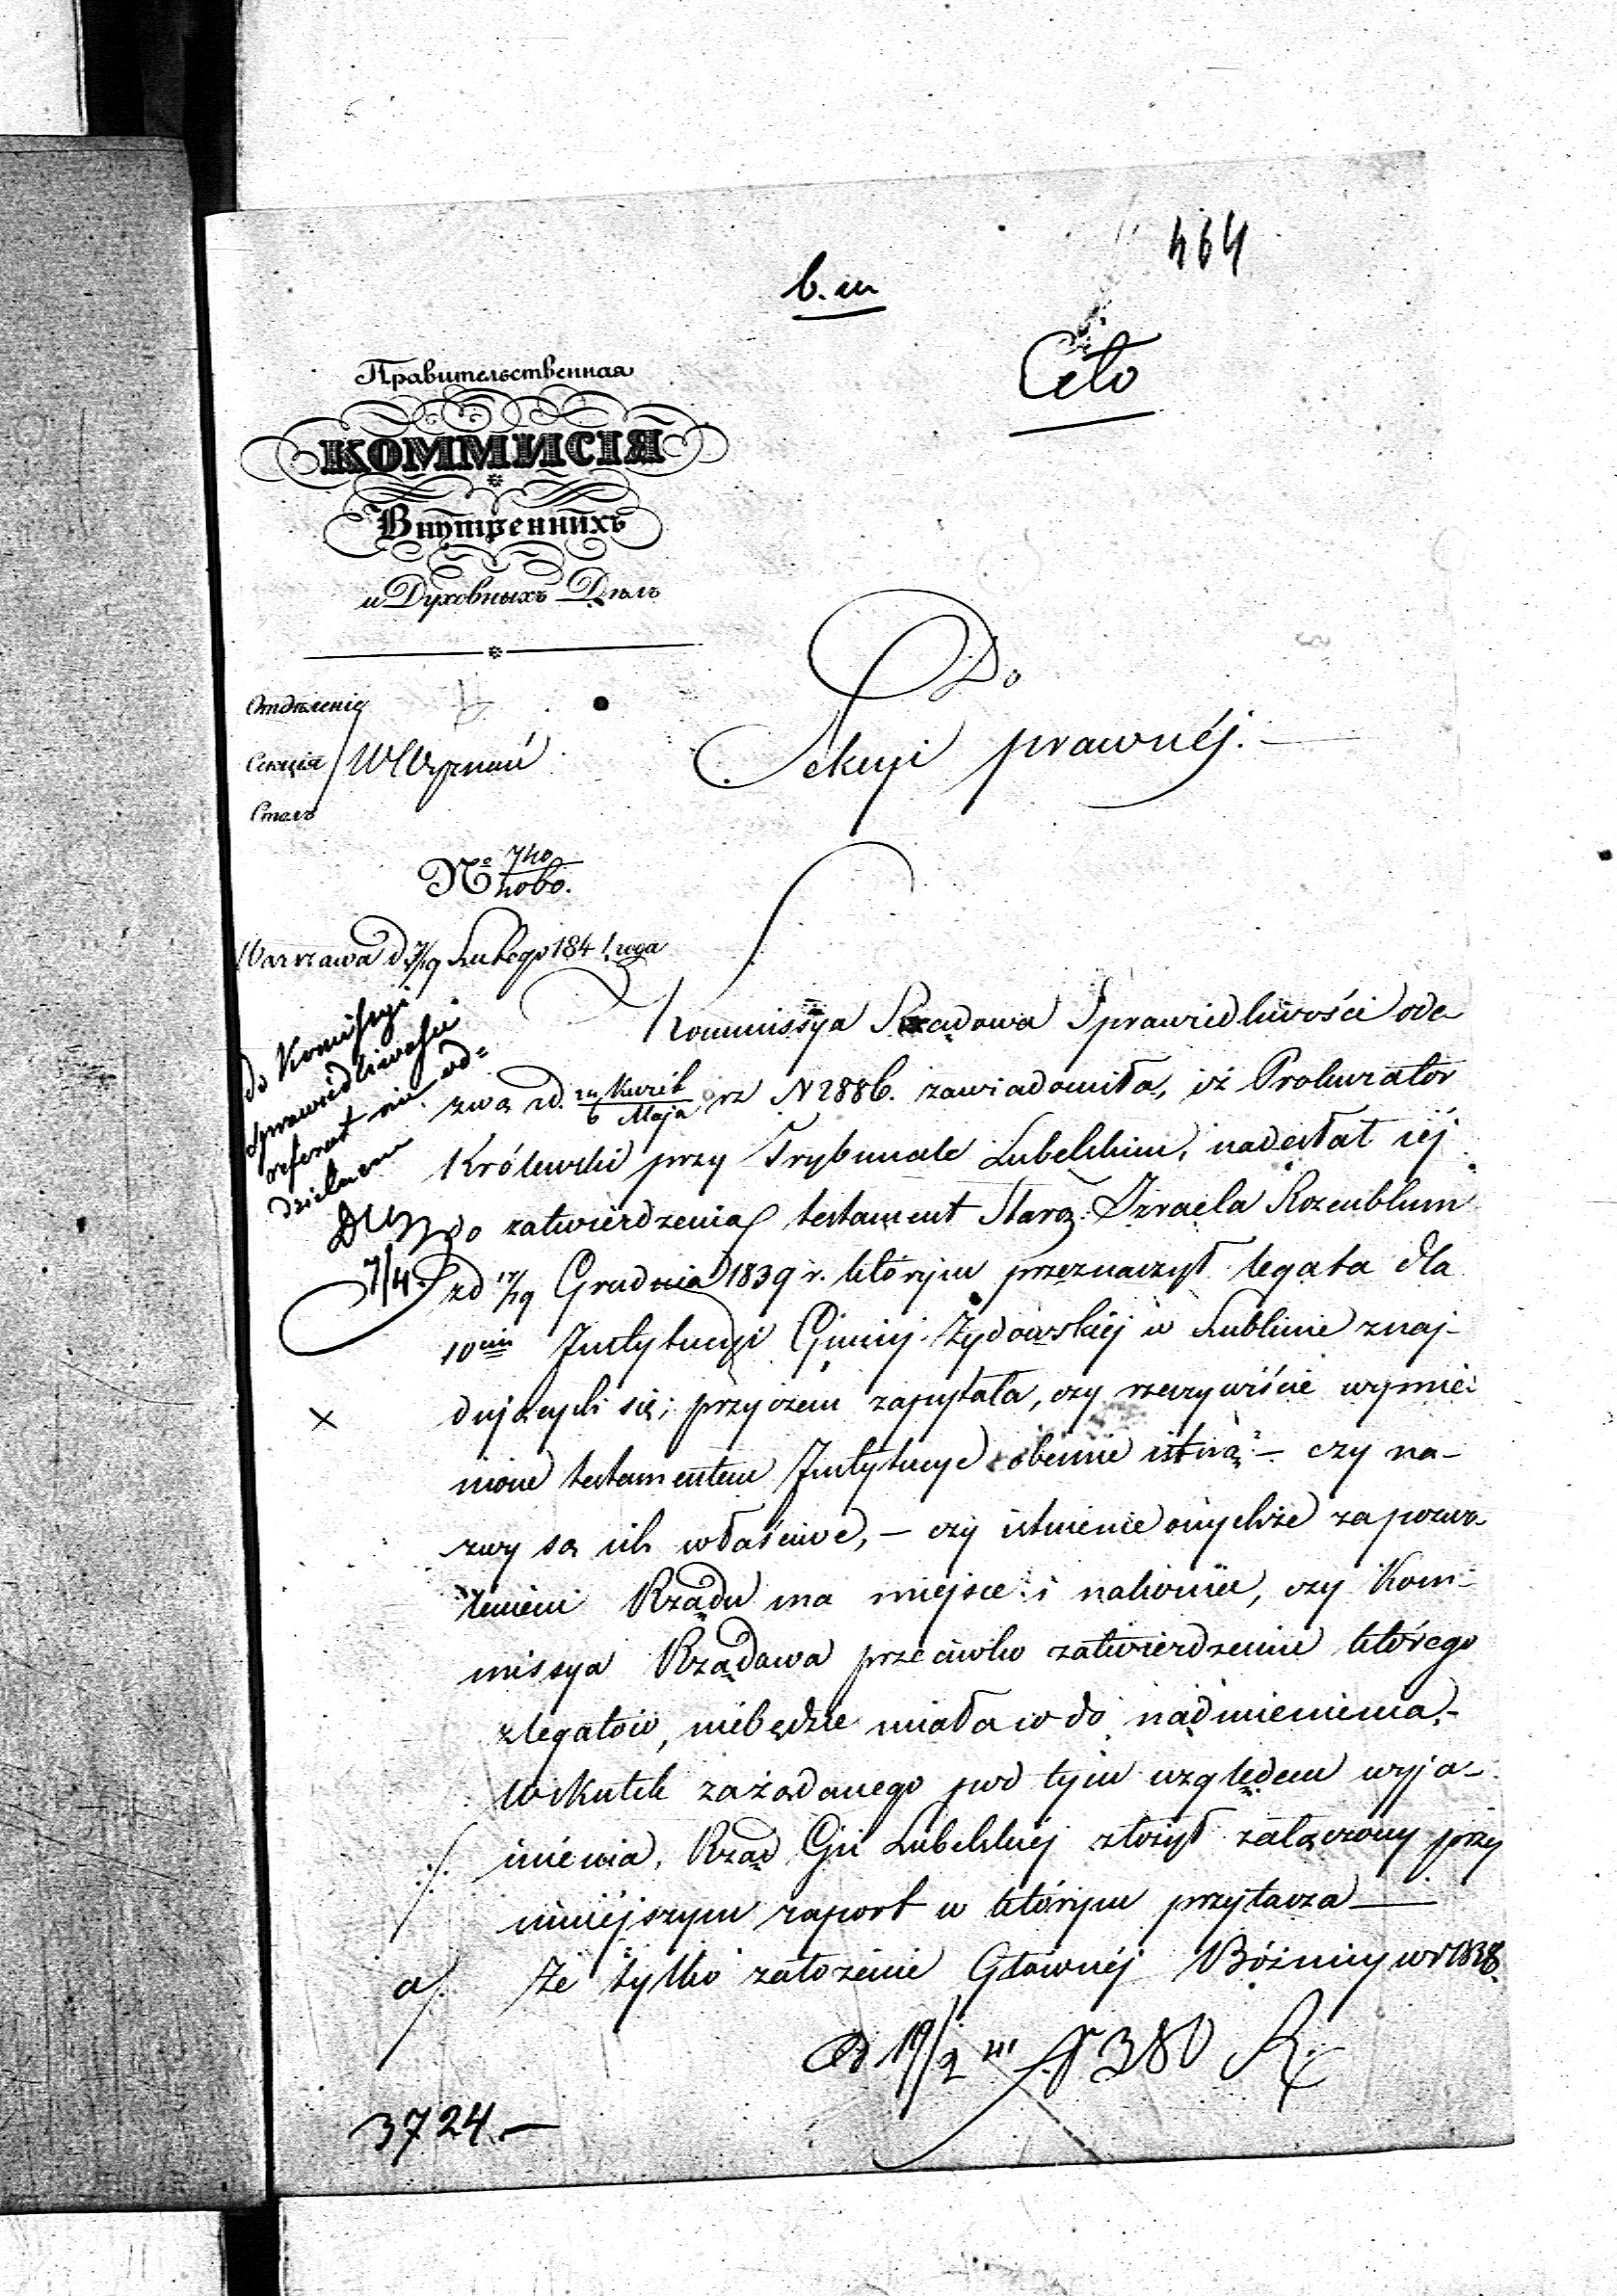 464
b. m
Cito
Правительственная
КОММИСІЯ
Внутреннихъ
и Духовныхъ Дѣлъ
Отдѣленіе
Секція Wyznań
Столъ
Do
Sekcyi prawnéj. —
№ 740
Warszawa d 7/19 Lutego 1841 roga
do Komisyi
Sprawiedliwości
referat nie od=
dzielnem
7/4.
Kommissya Rządowa Sprawiedliwości ode
zwą zd. 24 Kwiet / 6 Maja rz N 2886. zawiadomiła, iż Prokurator
Królewski przy Trybunale Lubelskim, nadesłał iéj
do zatwierdzenia testament Staroz. Izraela Rozenblum
zd 17/19 Grudnia 1839 r. którym przeznaczył legata dla
10ciu Instytucyi Gminy Żydowskiéj w Lublinie znaj-
× dujących się; przyczem zapytała, czy rzeczywiście wymie-
nione testamentem Instytucye obecnie istnią? — czy na-
zwy są ich właściwe, — czy istnienie onychże za pozwo-
leniem Rządu ma miejsce i nakoniec, czy Kom-
missya Rządowa przeciwko zatwierdzeniu którego
z legatów, niebędzie miała co do nadmienienia,-
Wskutek zażądanego pod tym względem wyja-
śnienia, Rząd Gu Lubelskiéj złożył załączony przy
niniéjszym raport w którym przytacza —
a/. że tylko założenie Głównéj Bóźnicy w r 1838.
Od 19/2 N 380 R.
3724.—